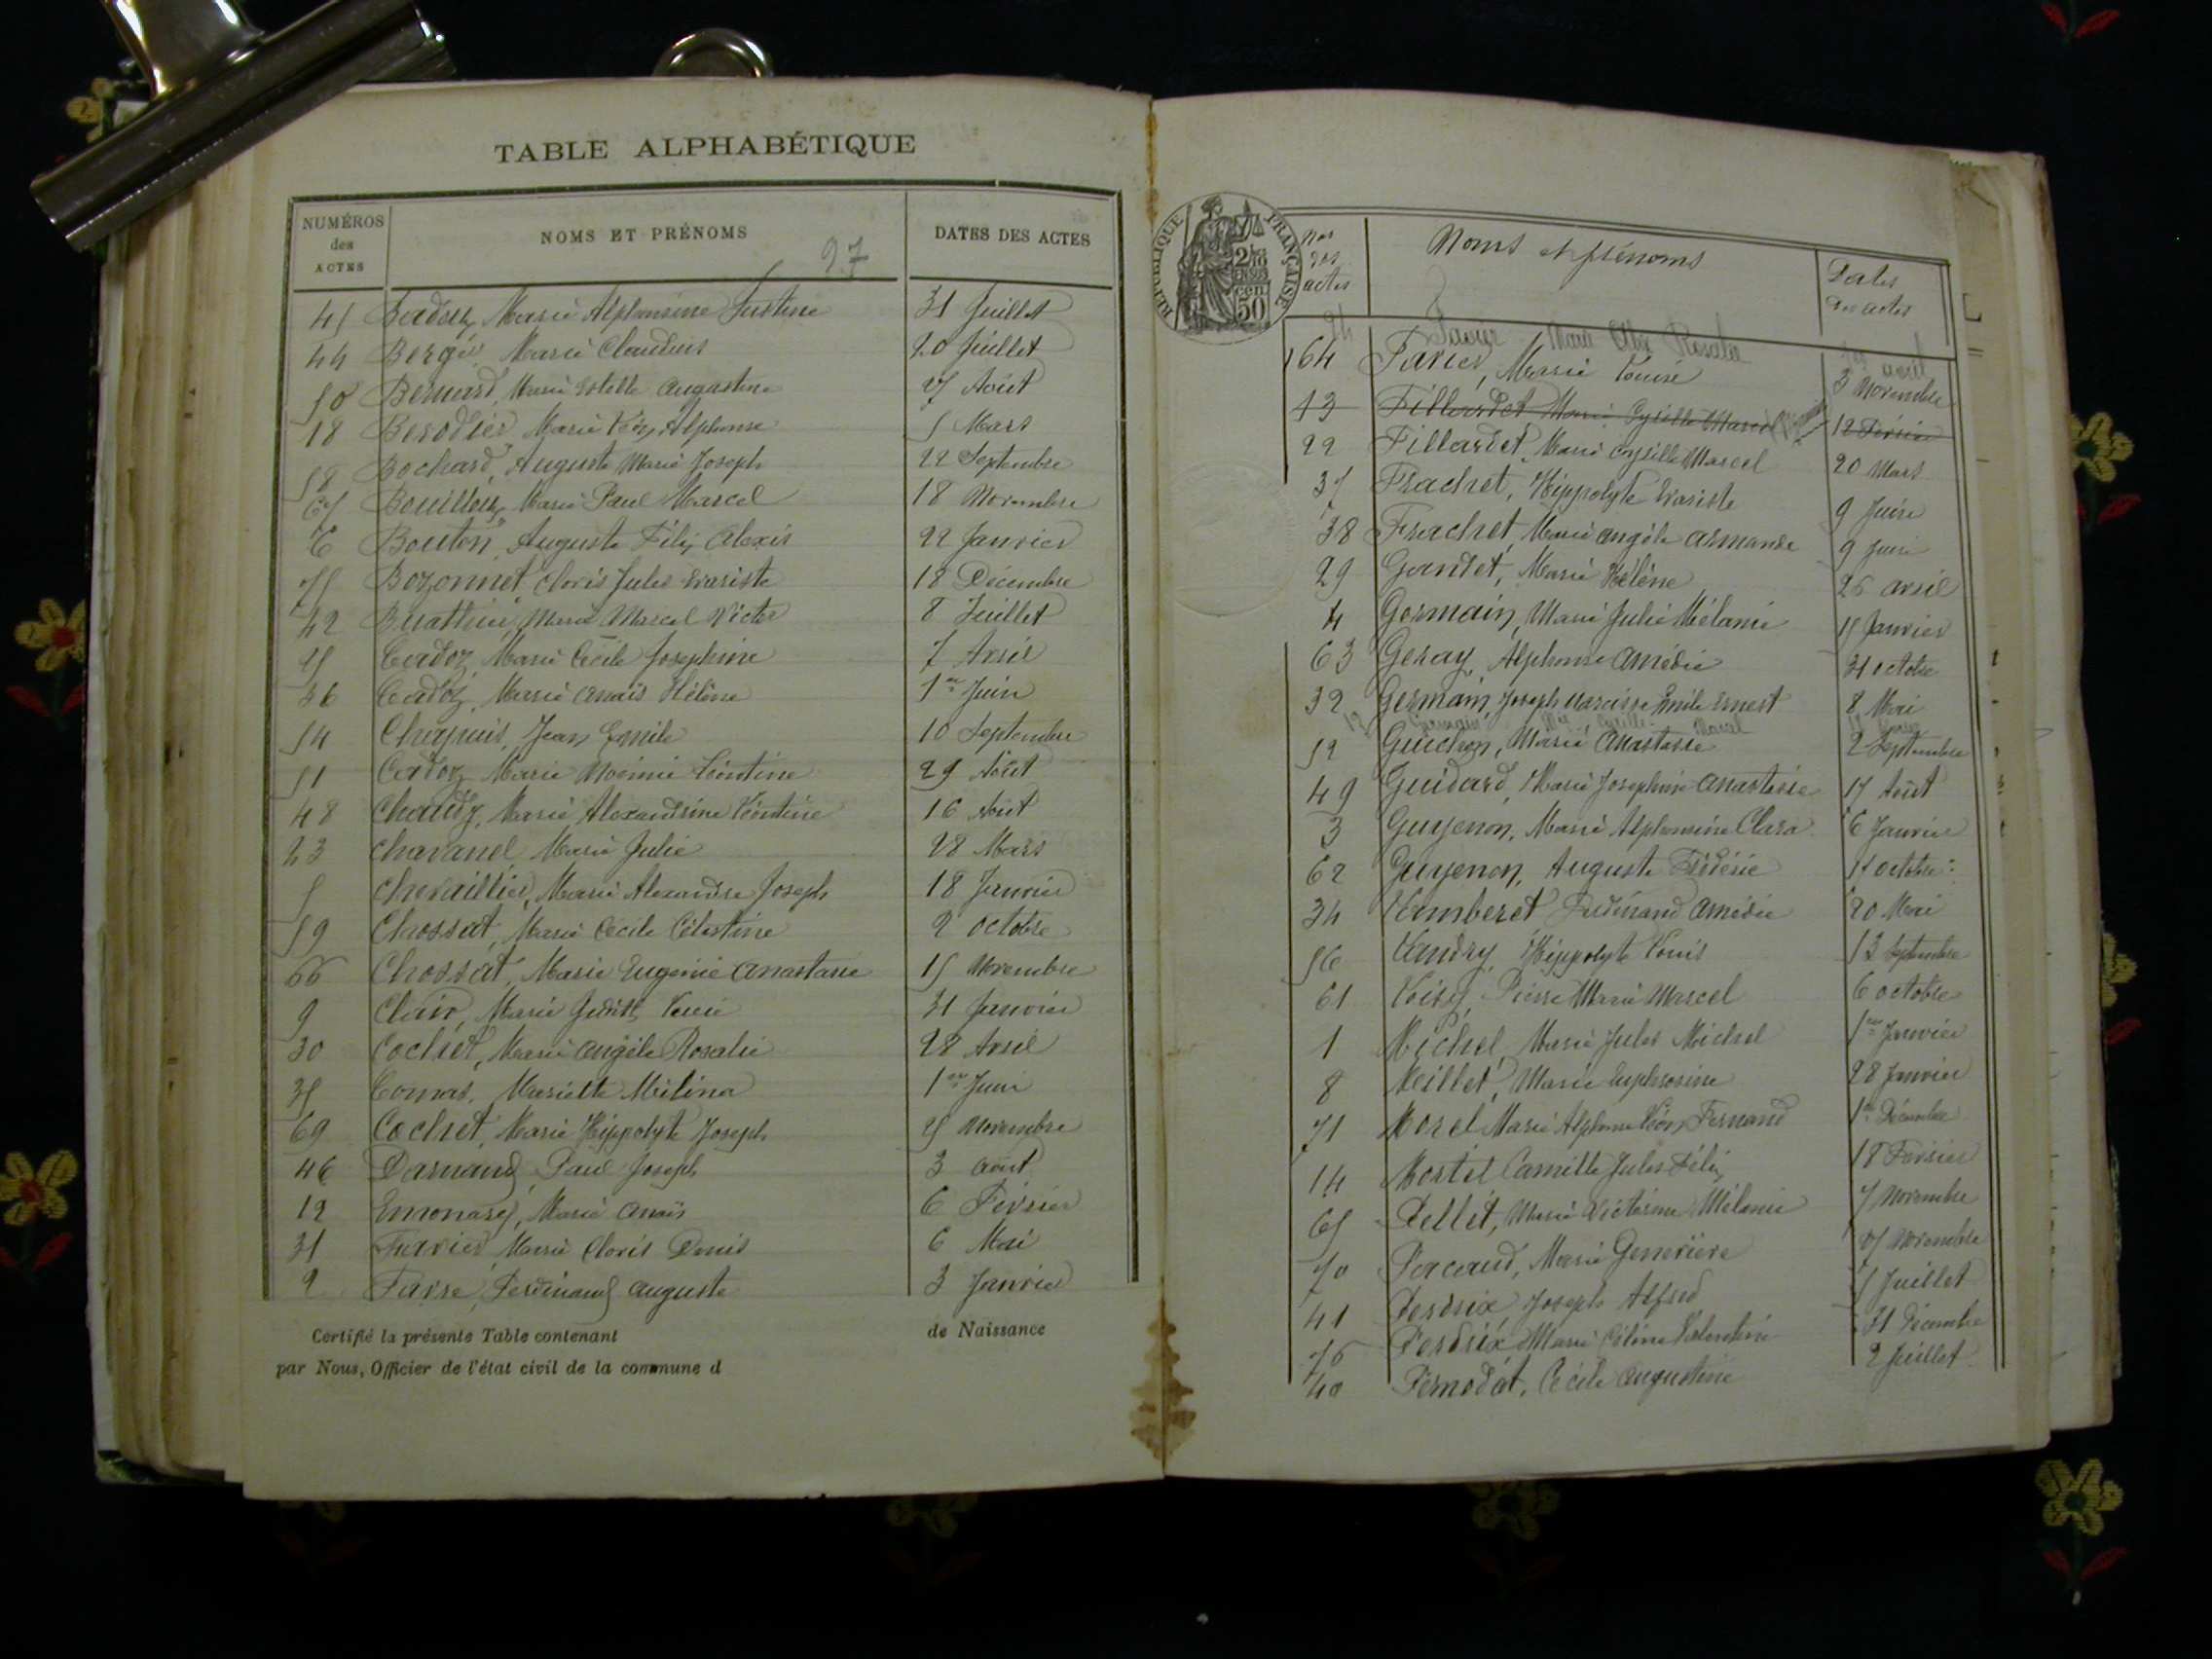 TABLE ALPHABÉTIQUE
NUMÉROS des ACTES
NOMS ET PRÉNOMS
97
DATES DES ACTES
45 Badoux Marie Alphonsine Justine 31 Juillet
44 Bergier Marie Claudius 20 Juillet
50 Bernard, Marie Estelle Augustine 27 Août
18 Berodier Marie Léon Alphonse 5 Mars
58 Bochard, Auguste Marie Joseph 22 Septembre
67 Bouilloux Marie Paul Marcel 18 Novembre
6 Bouton Auguste Félix Alexis 22 Janvier
75 Bozonnet Cloris Jules Evariste 18 Décembre
42 Marie Marcel Victor 8 Juillet
25 Cadoz Marie Cécile Josephine 7 Avril
36 Cadoz, Marie Anaïs Hélène 1er Juin
54 Chapuis, Jean Emile 10 Septembre
51 Cadoz Marie Noémie Léontine 29 Août
48 Chaudy, Marie Alexandrine Léontine 16 Août
23 Chavanel Marie Julie 28 Mars
5 Chevaillier, Marie Alexandre Joseph 18 Janvier
59 Chossat, Marie Cécile Célestine 2 Octobre
66 Chossat, Marie Eugénie Anastasie 15 Novembre
9 Clair, Marie Judith 31 Janvier
30 Cochet, Marie Angèle Rosalie 28 Avril
35 Comas, Mariette Mélina 1er Juin
69 Cochet, Marie Hippolyte Joseph 25 Novembre
46 Darnand Paul Joseph 3 Août
12 Emonard, Marie Anaïs 6 Février
31 Favier, Marie Cloris Denis 6 Mai
2 Favre, Ferdinand Auguste 3 Janvier
Certifié la présente Table contenant de Naissance
par Nous, Officier de l'état civil de la commune d
RÉPUBLIQUE FRANÇAISE
50 cen
Nos des actes
Noms et prénoms
Dates des actes
24 Favier Marie Rosalie 19 avril
64 Favier, Marie Louise 3 Novembre
13 Fillardet Marie Cyrille Marcel 12 Février
22 Fillardet, Marie Cyrille Marcel 20 Mars
37 Frachet, Hippolyte Evariste 9 Juin
38 Frachet Marie Angèle Armande 9 Juin
29 Gandet, Marie Hélène 26 Avril
4 Germain, Marie Julie Mélanie 15 Janvier
63 Geray, Alphonse Amédée 31 octobre
32 Germain, Joseph Narcisse Emile Ernest 8 Mai
13 Germain Marie Cyrille Marcel 12 Février
52 Guichon, Marie Anastasie 2 Septembre
49 Guidard, Marie Josephine Anastasie 17 Août
3 Guyenon, Marie Alphonsine Clara 6 Janvier
62 Guyenon, Auguste Frédéric 15 octobre
34 Lamberet Ferdinand Amédée 20 Mai
56 Landry, Hippolyte Louis 13 Septembre
61 Loisy, Pierre Marie Marcel 6 octobre
1 Michel, Marie Jules Michel 1er Janvier
8 Millet, Marie Euphrosine 28 Janvier
71 Morel Marie Alphonse Léon Fernand 1er Décembre
14 Mortel Camille Jules Félix 18 Février
65 Pellet, Marie Victorine Mélanie 7 Novembre
70 Marie Geneviève 27 Novembre
41 Perdrix, Joseph Alfred 5 Juillet
76 Perdrix Marie Céline Valentine 31 Décembre
40 Pernodat, Cécile Augustine 2 Juillet